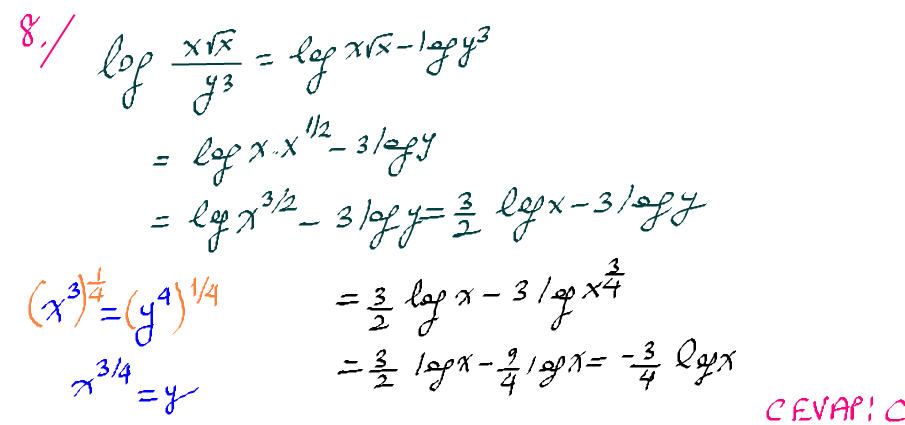 8./
log x√x/y³ = log x√x - log y³
= log x.x^1/2 - 3 log y
= log x^3/2 - 3 log y = 3/2 log x - 3 log y
(x³)^1/4 = (y⁴)^1/4
= 3/2 log x - 3 log x^3/4
x^3/4 = y
= 3/2 log x - 9/4 log x = -3/4 log x
CEVAP: C